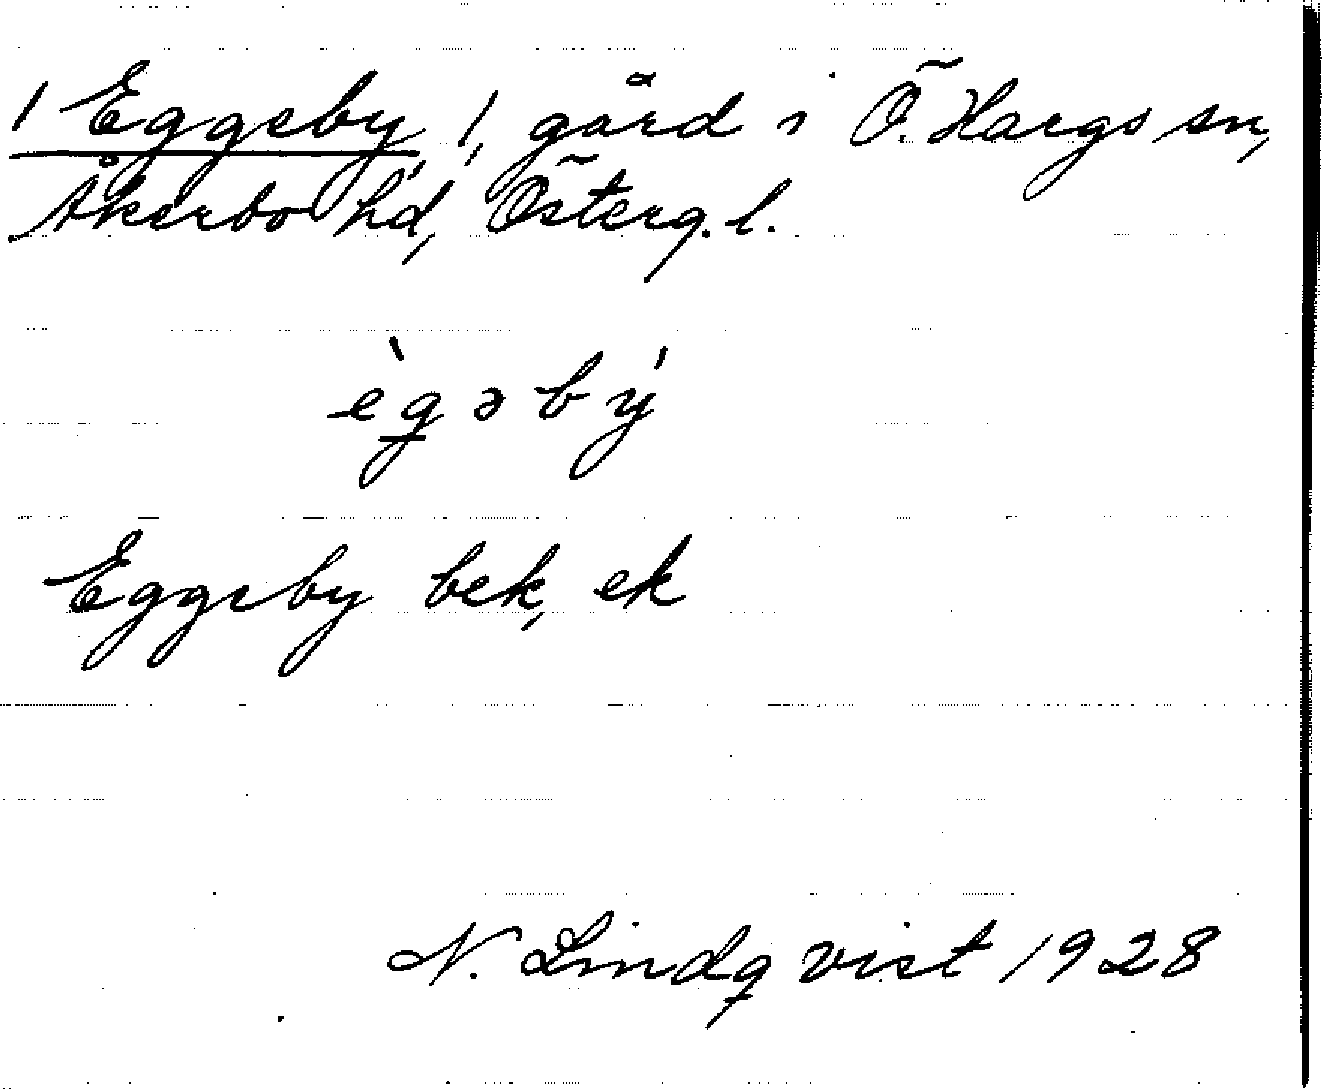 / Eggeby /, gård i Ö. Hargs sn,
Åkerbo hd, Österg. l.
ègəbý
Eggeby bek, ek
N. Lindqvist 1928